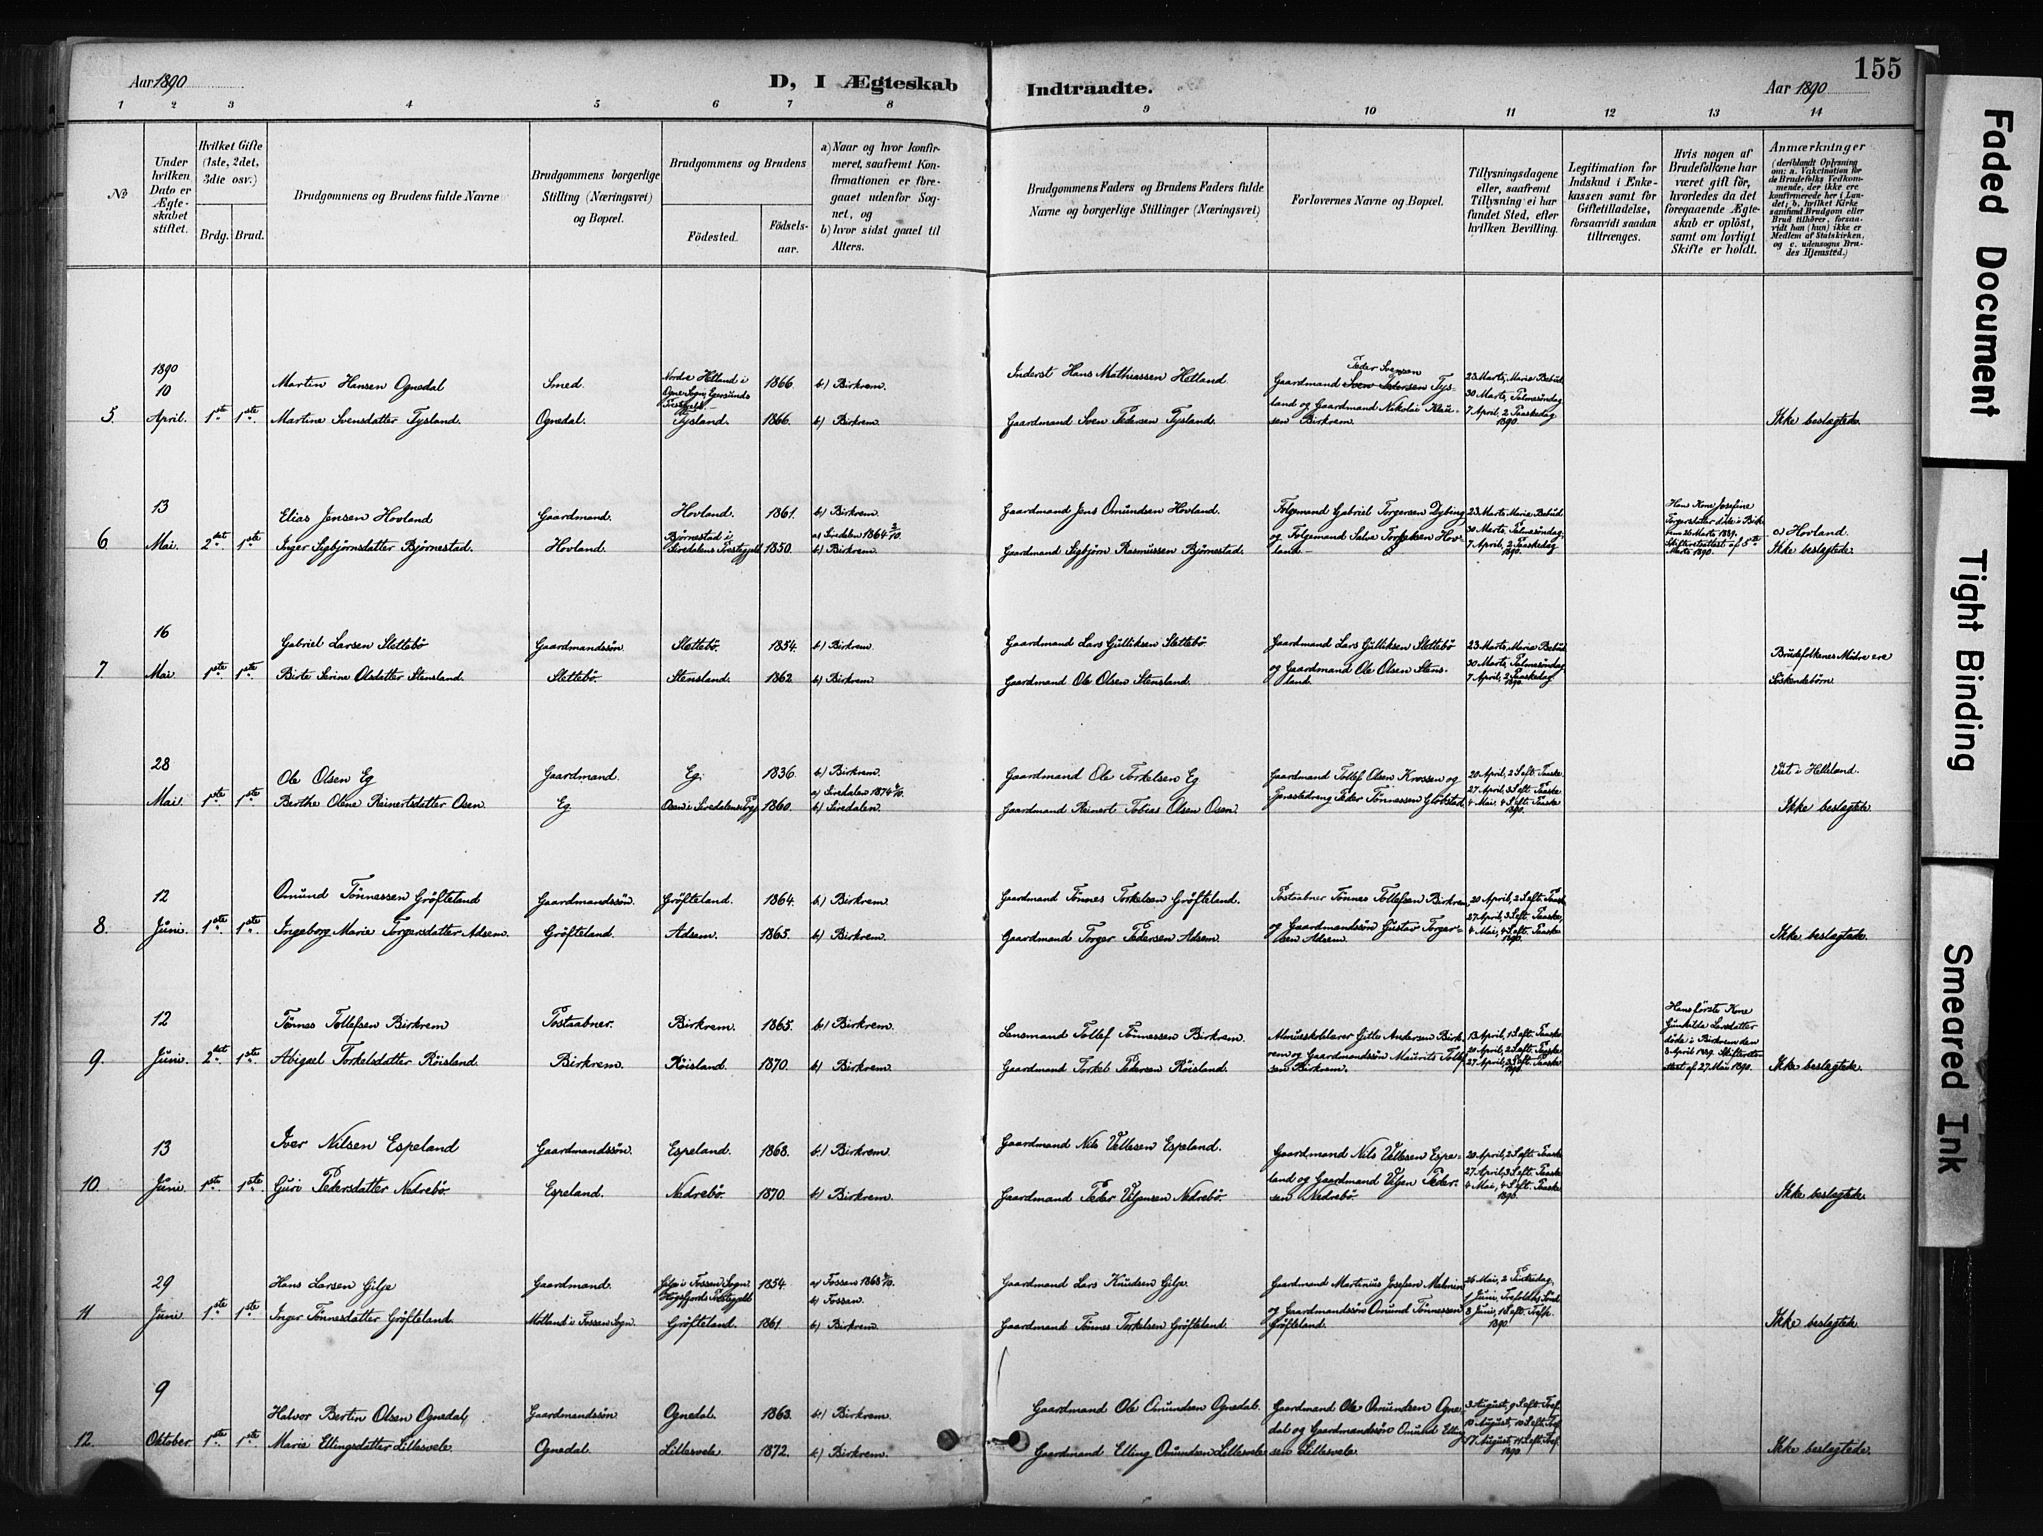 155
Aar 1890
D, I Ægteskab
Indtraadte.
Aar 1890
1 2 3 4 5 6 7 8 9 10 11 12 13 14
No
Under hvilken Dato er Ægteskabet stiftet.
Hvilket Gifte (1ste, 2det, 3die osv.)
Brdg. Brud.
Brudgommens og Brudens fulde Navne
Brudgommens borgerlige Stilling (Næringsvei) og Bopæl.
Brudgommens og Brudens
Födested.
Födselsaar.
a) Naar og hvor konfirmeret, saafremt Konfirmationen er foregaaet udenfor Sognet, og
b) hvor sidst gaaet til Alters.
Brudgommens Faders og Brudens Faders fulde Navne og borgerlige Stillinger (Næringsvei)
Forlovernes Navne og Bopæl.
Tillysningsdagene eller, saafremt Tillysning ei har fundet Sted, efter hvilken Bevilling.
Legitimation for Indskud i Enkekassen samt for Giftetilladelse, forsaavidt saadan tiltrænges.
Hvis nogen af Brudefolkene har været gift för, hvorledes da det foregaaende Ægteskab er oplöst, samt om lovligt Skifte er holdt.
Anmærkninger
(deriblandt Oplysning om: a. Vakcination for de Brudefolks Vedkommende, der ikke ere konfirmerede her i Landet; b. hvilket Kirkesamfund Brudgom eller Brud tilhörer, forsaavidt han (hun) ikke er Medlem af Statskirken, og c. udensogns Brudes Hjemsted.)
1890
5. 10 April. 1ste 1ste
Martin Hansen Ognedal
Martine Svensdatter Tysland.
Smed.
Ognedal.
Nordre Hetland i Ogne Sogn, Egersunds Prestegjeld.
Tysland.
1866.
1866.
b) Birkrem.
b) Birkrem.
Inderst Hans Mathiassen Hetland
Gaardmand Sven Pedersen Tysland.
Peder Svensen
Gaardmand Sven Pedersen Tysland og Gaardmand Nikolai Klausen Birkrem.
23 Marts, Maria Bebud.
30 Marts, Palmesöndag
7 April, 2 Paaskedag
1890.
Ikke beslægtede.
6. 13 Mai. 2det 1ste
Elias Jensen Hovland
Inger Sigbjørnsdatter Bjørnestad.
Gaardmand.
Hovland.
Hovland.
Bjørnestad i Siredalens Prestegjeld
1861.
1850.
b) Birkrem.
a) Siredalen 1864 2/10.
b) Birkrem.
Gaardmand Jens Omundsen Hovland.
Gaardmand Sigbjørn Rasmussen Bjørnestad.
Folgemand Gabriel Torgersen Dybing og Folgemand Salve Torkelsen Hovland.
23 Marts, Maria Bebud.
30 Marts, Palmesöndag
7 April, 2 Paaskedag
1890.
Hans Kone Josefine Torgersdatter døde i Birkrem 26 Marts 1889. Skifteretsattest af 5te Marts 1890.
a) Hovland.
Ikke beslægtede.
7. 16 Mai 1ste 1ste
Gabriel Larsen Slettebö
Birte Serine Olsdatter Stensland.
Gaardmandssön.
Slettebö.
Slettebö.
Stensland.
1854.
1862.
b) Birkrem.
b) Birkrem.
Gaardmand Lars Gulliksen Slettebö.
Gaardmand Ole Olsen Stensland.
Gaardmand Lars Gulliksen Slettebö og Gaardmand Ole Olsen Stensland.
23 Marts, Maria Bebud.
30 Marts, Palmesöndag
7 April, 2 Paaskedag
1890.
Brudefolkenes Mödre ere Söskendebörn.
28 Mai 1ste 1ste
Ole Olsen Eg
Berthe Olene Reinertsdatter Osen.
Gaardmand.
Eg
Eg.
Osen i Siredalens Prgj.
1836.
1860.
b) Birkrem.
a) Siredalen 1874 4/10.
b) Siredalen.
Gaardmand Ole Torkelsen Eg
Gaardmand Reinert Tobias Olsen Osen.
Gaardmand Tollef Olsen Krossen og Tjenestedreng Peder Tönnessen Globstad.
20 April, 2 S. eft. Paaske
27 April, 3 S. eft. Paaske
4 Mai, 4 S. eft. Paaske
1890.
Viet i Helleland.
Ikke beslægtede.
8. 12 Juni. 1ste 1ste
Omund Tönnessen Gröfteland
Ingeborg Marie Torgersdatter Adsem.
Gaardmandssön.
Gröfteland.
Gröfteland.
Adsem.
1864.
1865.
b) Birkrem.
b) Birkrem.
Gaardmand Tönnes Torkelsen Gröfteland.
Gaardmand Torger Pedersen Adsem.
Postaabner Tönnes Tollefsen Birkrem og Gaardmandssön Gustav Torgersen Adsem.
20 April, 2 S. eft. Paaske
27 April, 3 S. eft. Paaske
4 Mai, 4 S. eft. Paaske
1890.
Ikke beslægtede.
9. 12 Juni. 2det 1ste
Tönnes Tollefsen Birkrem
Abigael Torkelsdatter Röisland.
Postaabner.
Birkrem.
Birkrem.
Röisland.
1865.
1870.
b) Birkrem.
b) Birkrem.
Lensmand Tollef Tönnessen Birkrem.
Gaardmand Torkel Pedersen Röisland.
Almueskolelærer Gitle Andersen Birkrem og Gaardmandssön Maurits Tollefsen Birkrem.
13 April, 1 S. eft. Paaske
20 April, 2 S. eft. Paaske
27 April, 3 S. eft. Paaske
1890.
Hans förste Kone Gunhilda Larsdatter döde i Birkrem den 3 April 1889. Skifteretsattest af 27 Mai 1890.
Ikke beslægtede.
10. 13 Juni 1ste 1ste
Iver Nilsen Espeland
Guri Pedersdatter Nedrebö.
Gaardmandssön.
Espeland.
Espeland.
Nedrebö.
1868.
1870.
b) Birkrem.
b) Birkrem.
Gaardmand Nils Vellesen Espeland.
Gaardmand Peder Veljensen Nedrebö.
Gaardmand Nils Vellesen Espeland og Gaardmand Veljen Pedersen Nedrebö.
20 April, 2 S. eft. Paaske
27 April, 3 S. eft. Paaske
4 Mai, 4 S. eft. Paaske
1890.
Ikke beslægtede.
11. 29 Juni 1ste 1ste
Hans Larsen Gilje
Inger Tönnesdatter Gröfteland.
Gaardmand.
Motland i Fossan Sogn.
Gilje i Fossan Sogn. Högsfjords Prestegjeld.
Gröfteland.
1854.
1861.
b) Fossan.
b) Birkrem.
Gaardmand Lars Knudsen Gilje.
Gaardmand Tönnes Torkelsen Gröfteland.
Gaardmand Martinus Josefsen Malmin og Gaardmandssön Omund Tönnessen Gröfteland.
26 Mai, 2 Pintsedag,
1 Juni, Trefoldigh. Sönd.
8 Juni, 1 S. eft. Tref.
1890
Ikke beslægtede.
12. 9 Oktober 1ste 1ste
Halvor Bertin Olsen Ognedal,
Marie Ellingsdatter Lillesvele.
Gaardmandssön.
Ognedal.
Ognedal.
Lillesvele.
1863.
1872.
b) Birkrem.
b) Birkrem.
Gaardmand Ole Omundsen Ognedal.
Gaardmand Elling Omundsen Lillesvele
Gaardmand Ole Omundsen Ognedal og Gaardmandssön Omund Ellingsen Lillesvele.
3 August, 9 S. eft. Tref.
10 August, 10 S. eft. Tref.
17 August, 11 S. eft. Tref.
1890.
Ikke beslægtede.
Faded Document
Tight Binding
Smeared Ink